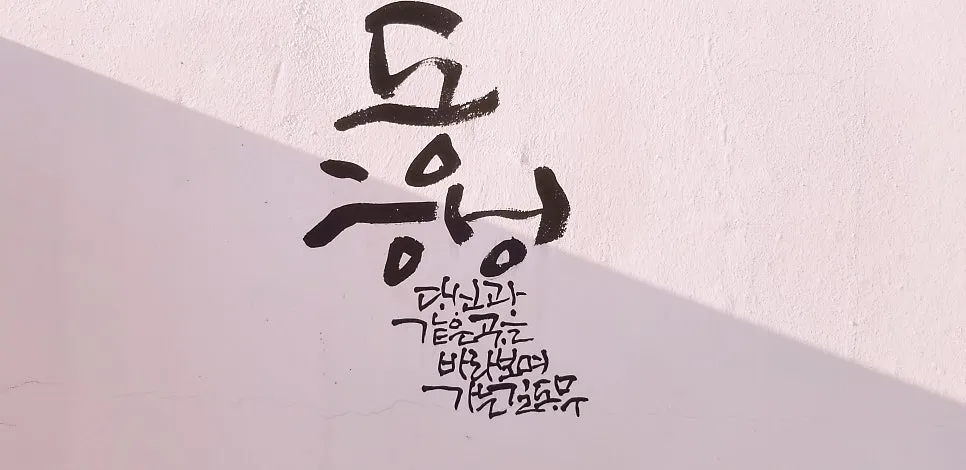 동행
당신과
같은 곳을
바라보며
가는 길동무